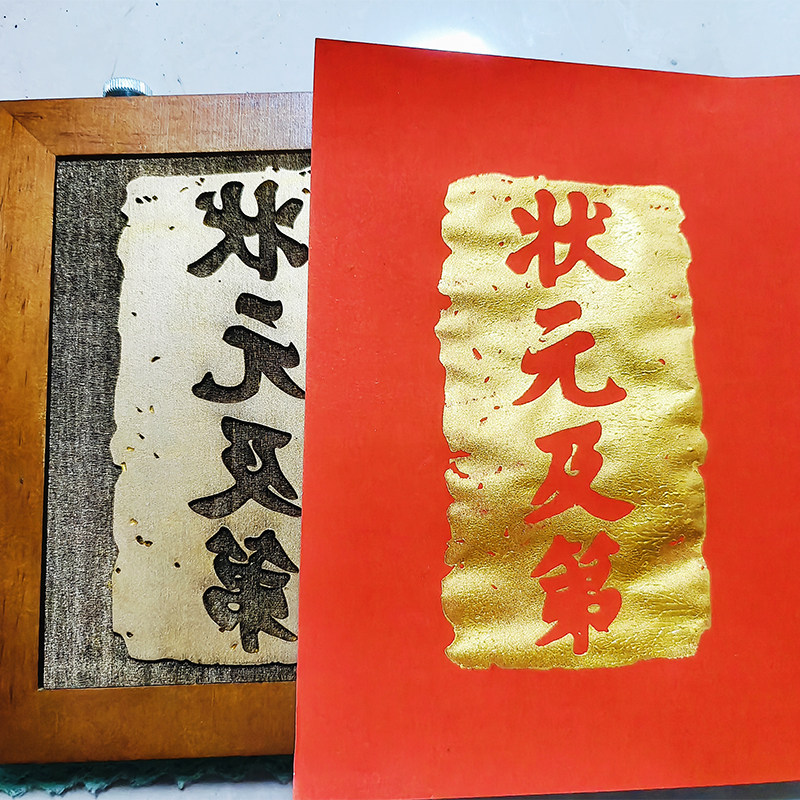 状元及第
状元及第